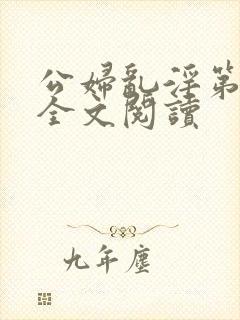 公婦亂淫第
全文閱讀
九年塵